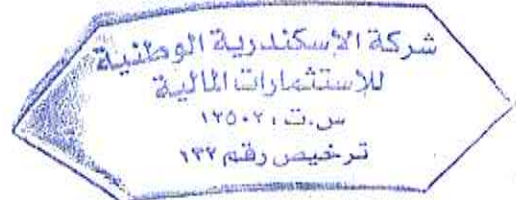 شركة الإسكندرية الوطنية
للإستثمارات المالية
س.ت، ١٢٥٠٢
ترخيص رقم ١٣٢